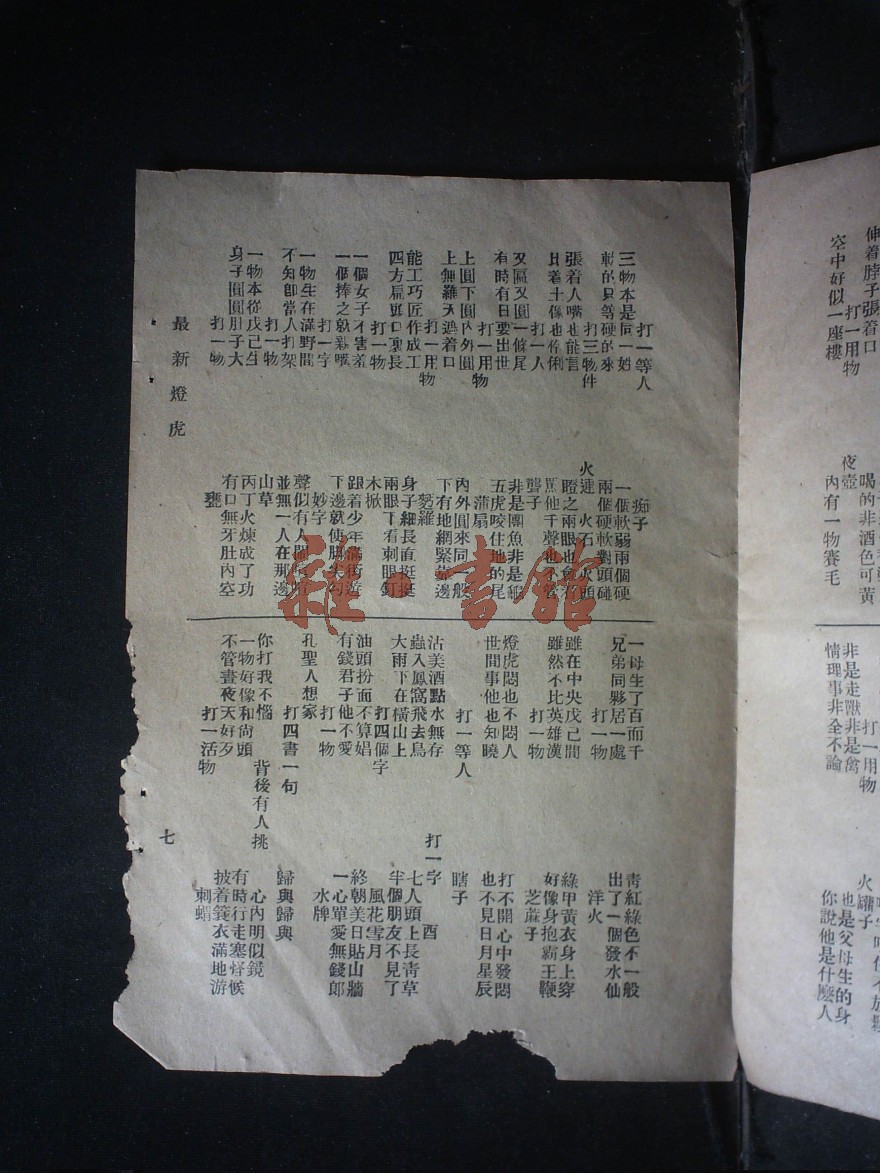 伸着脖子張着口
打一用物
空中好似一座樓
夜壺
喝的非酒色可黃
內有一物賽毛
打一用物
非是走獸非是禽
情理事非全不論
火罐子
也是父母生的身
你說他是什麼人
打一等人
痴子
三物本是同一姓
一個軟弱兩個硬
軟的只等硬的來
兩個硬軟對頭碰
打三物件
火連 火石 火頭
張着人嘴也能言
瞪之兩眼也會看
比着土像也作俐
罵他千聲也不管
打一人
聾子
又匾又圓一條尾
非是團魚非是鱉
有時有日要出世
五虎咬住地的尾
打一用物
蒲扇
上圓下圓內外圓
內外圓來同一般
上無羅天遮着口
下有地網緊靠邊
打一用物
籮
能工巧匠作成工
身子細長直挺挺
四方扁頭口裏長
兩眼下看刺眼釘
打一物
木掀
一個女子不害羞
跟着少年滿街遊
一個捧之就彩嘴
下邊就使脚尖勾
打一字
妙字
一物生在滿野間
聲似有人鬧
不知卽當人打架
並無一人在那邊
打一物
山草
一物本從戊己生
丙丁火煉成了功
身子圓圓肚子大
有口無牙肚內空
打一物
甕
一母生了百而千
青紅綠色不一般
兄弟同夥居一處
出了一個發水仙
打一物
洋火
雖在中央戊己間
綠甲黃衣身上穿
雖然不比英雄漢
好像身抱霸王鞭
打一物
芝蔴子
燈虎悶也不悶人
打不開心中發悶
世間事他也知曉
也不見日月星辰
打一等人
瞎子
沽美酒點水無存
打一字 酉
蟲入鳳窩飛去鳥
七人頭上長青草
大雨下在橫山上
半個朋友不見了
打四個字
風花雪月
油頭扮面不算娼
終朝美日貼山牆
有錢君子他不愛
一心單愛無錢郎
打一物
水牌
孔聖人想家
打四書一句
歸與歸與
你打我不惱
背後有人挑
心內明似鏡
一物好像和尚頭
有時行走塞烀候
不管晝夜天好歹
披着簑衣滿地游
打一活物
刺蝟
最新燈虎
七
雜·書館